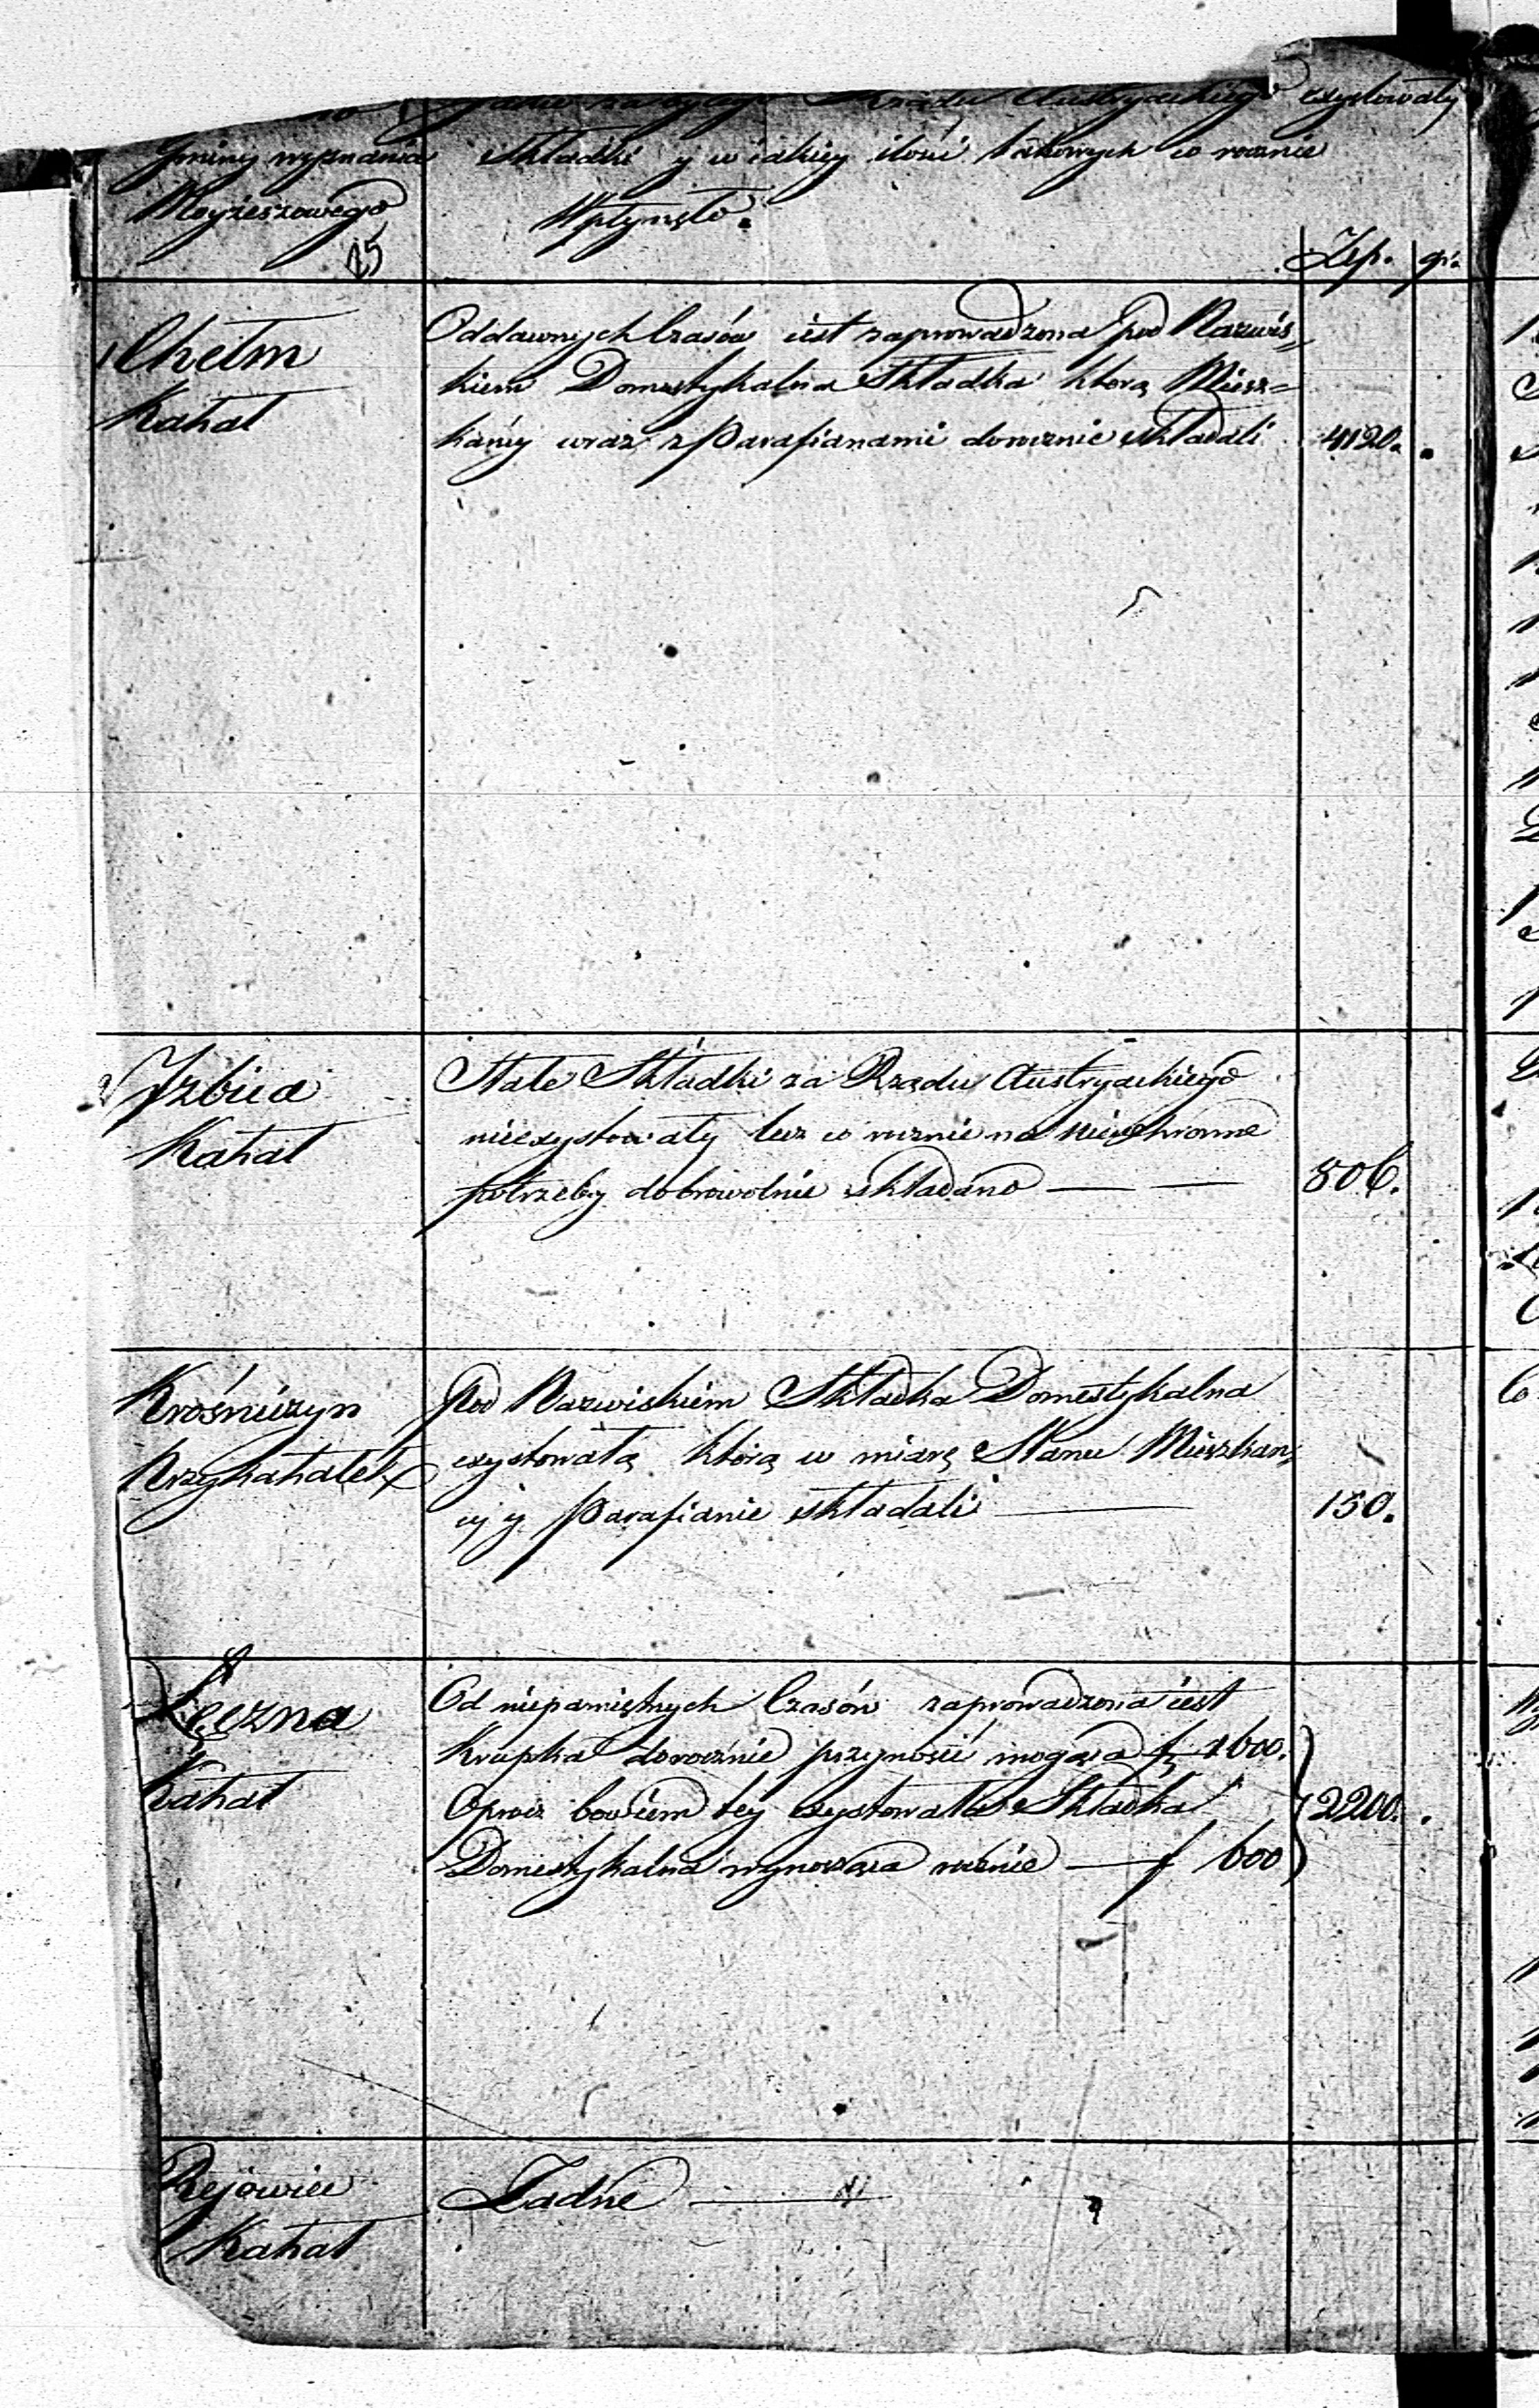 za Rządu Austryackiego exystowały
Gminy wyznania Składki y w iakiey ilości takowych co rocznie
Moyżeszowego Wpłynęło.
25
Złp. gr.
Chełm
Kahał
Oddawnych Czasów iest zaprowadzona pod Nazwis=
kiem Domestykalna Składka którą Miesz=
kańcy wraz z Parafianami dorocznie składali 4120.
Izbica
Kahał
Stałe Składki za Rządu Austryackiego
nieexystowały lecz co rocznie na nieuchronne
potrzeby dobrowolnie składano — — 806.
Krośniczyn
Przykahałek
Pod Nazwiskiem Składka Domestykalna
exystowała którą w miarę Stanu Mieszkań=
cy y Parafianie składali — 150.
Łęczna
Kahał
Od niepamiętnych Czasów zaprowadzona iest
Krupka dorocznie przynosić mogąca f 1600.
Oprócz bowiem tey exystowała Składka 2200.
Domestykalna wynosząca rocznie — f 600
Rejowiec
Kahał
Żadne —